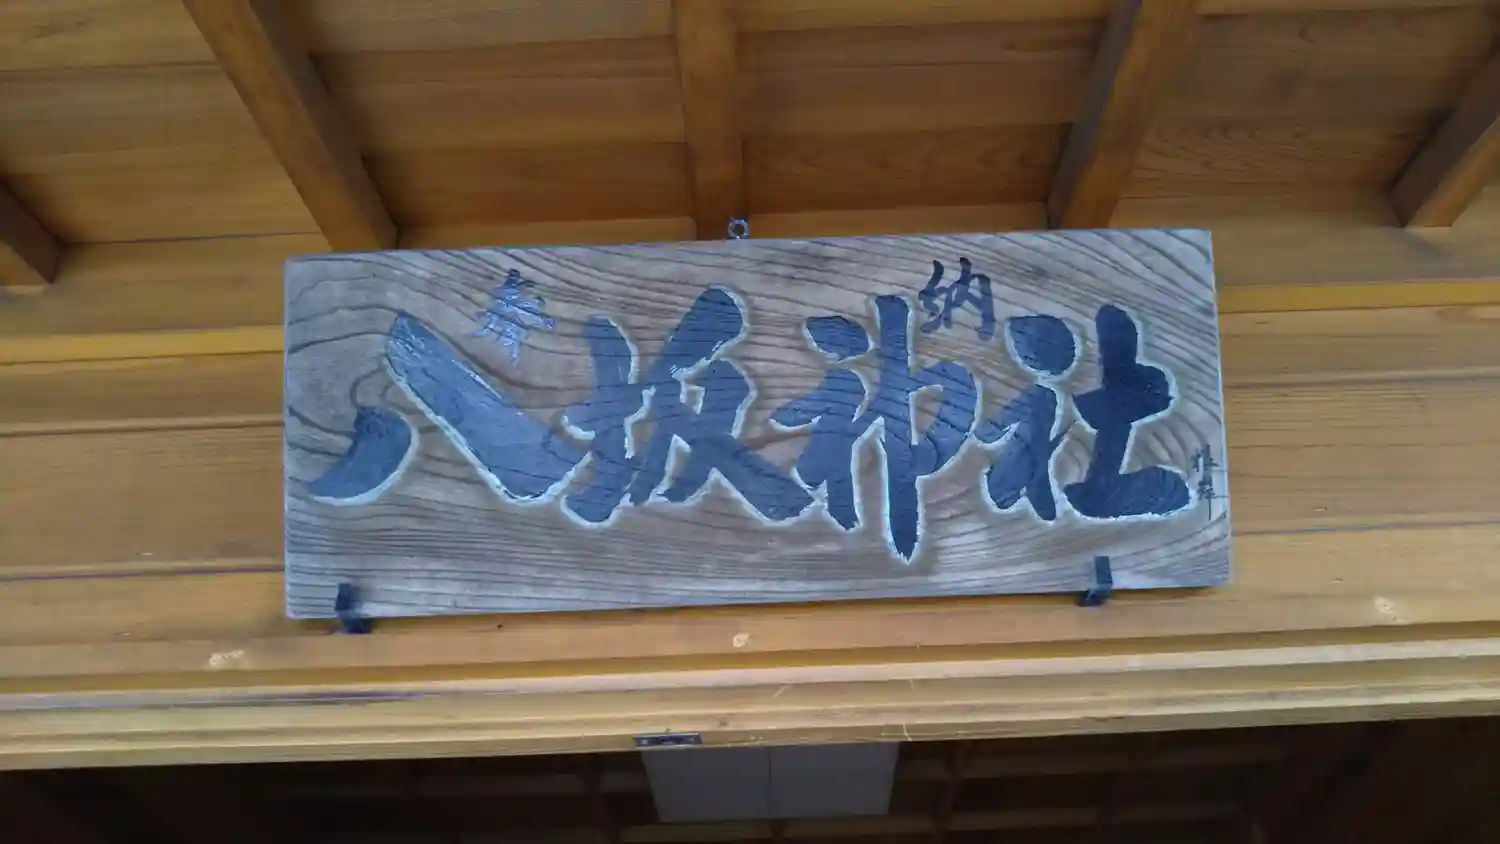 奉納
八坂神社